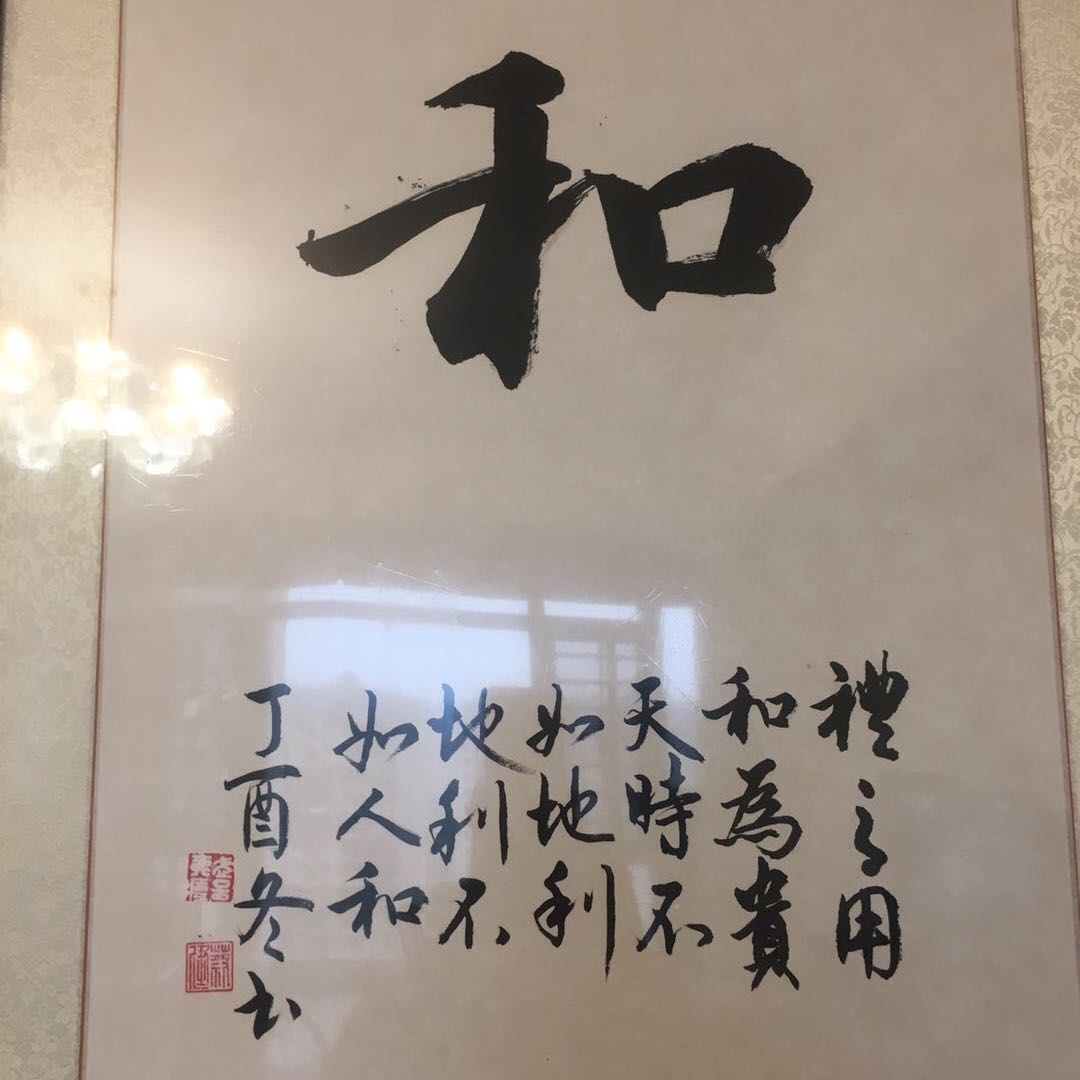 和
禮之用
和為貴
天時不
如地利
地利不
如人和
丁酉冬书